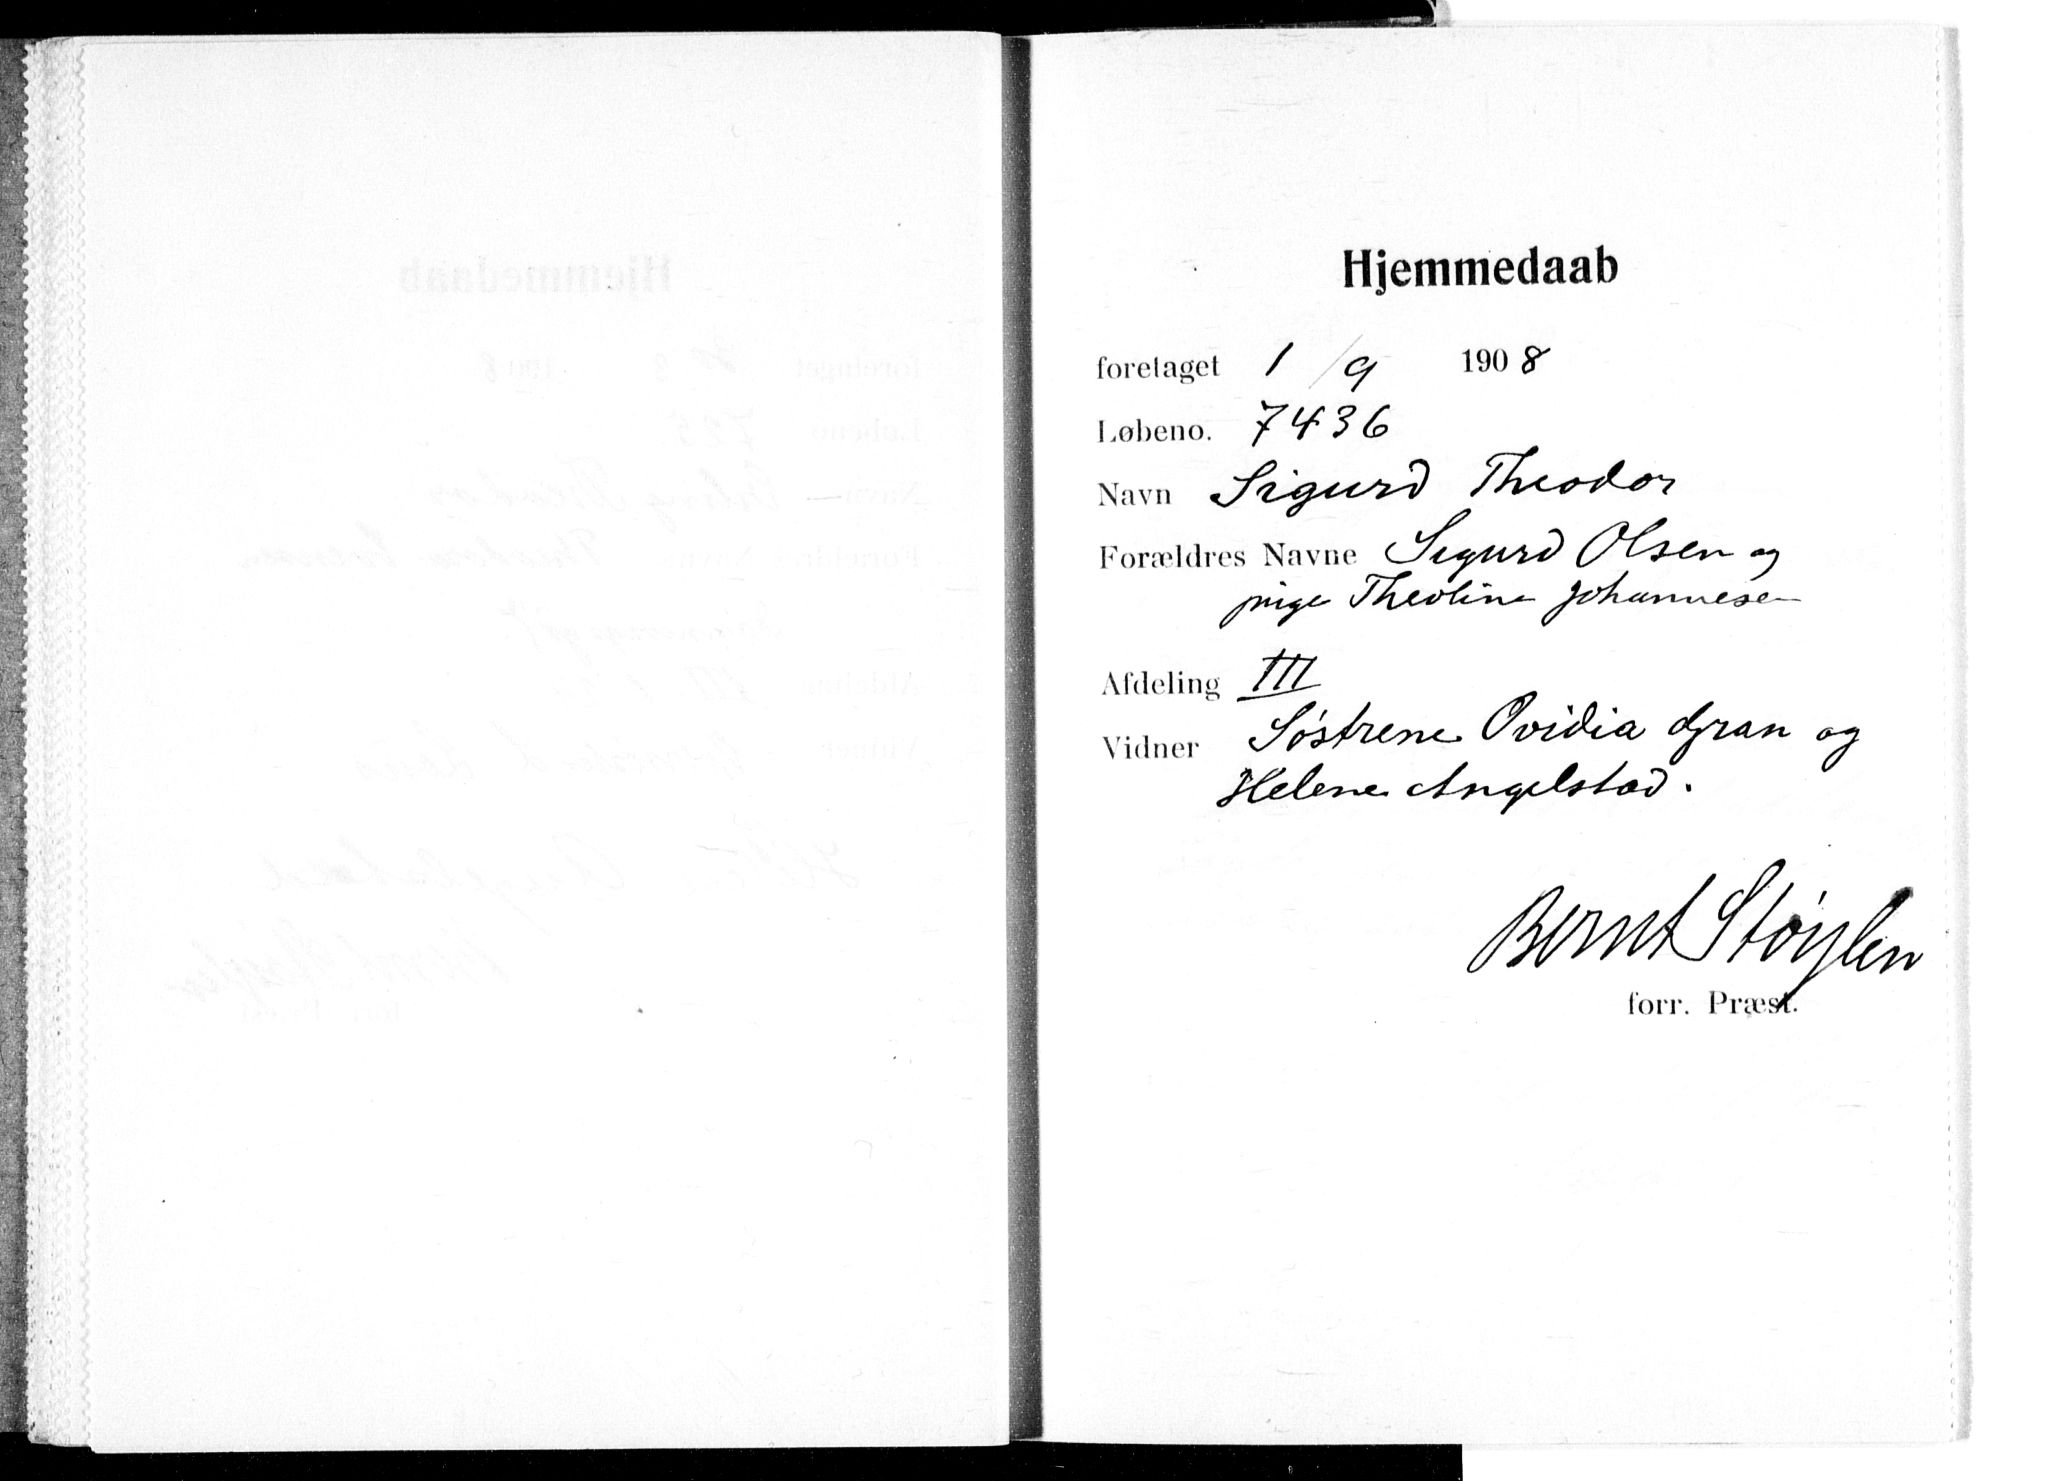 Hjemmedaab
foretaget 1/9 1908
Løbeno. 7436
Navn Sigurd Theodor
Forældres Navne Sigurd Olsen og
pige Theoline Johannesen
Afdeling III
Vidner Søstrene Ovidia Gran og
Helene Angelstad.
Bernt Støylen
forr. Præst.